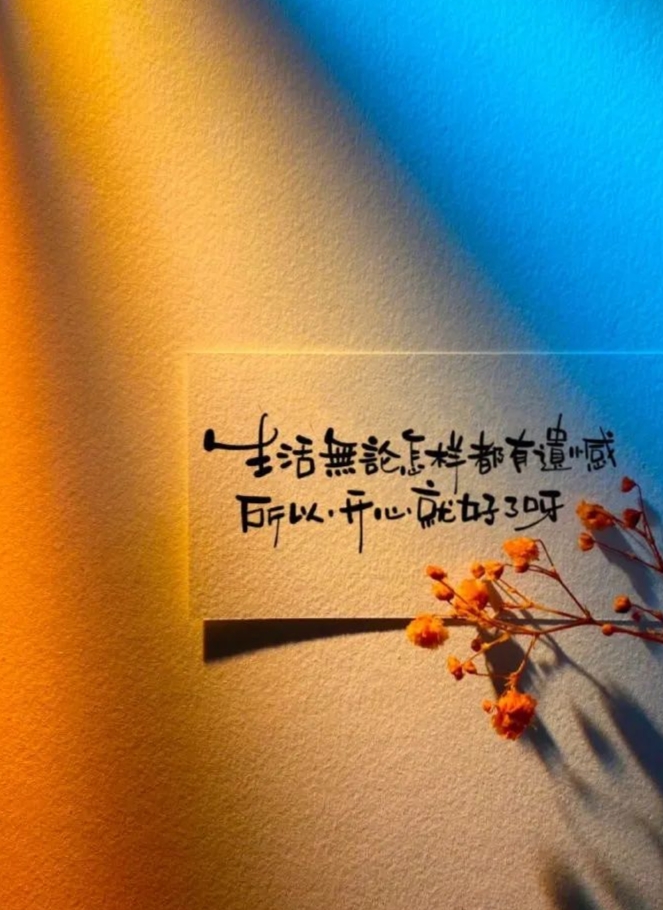 生活無論怎样都有遺憾
所以·开心就好了呀